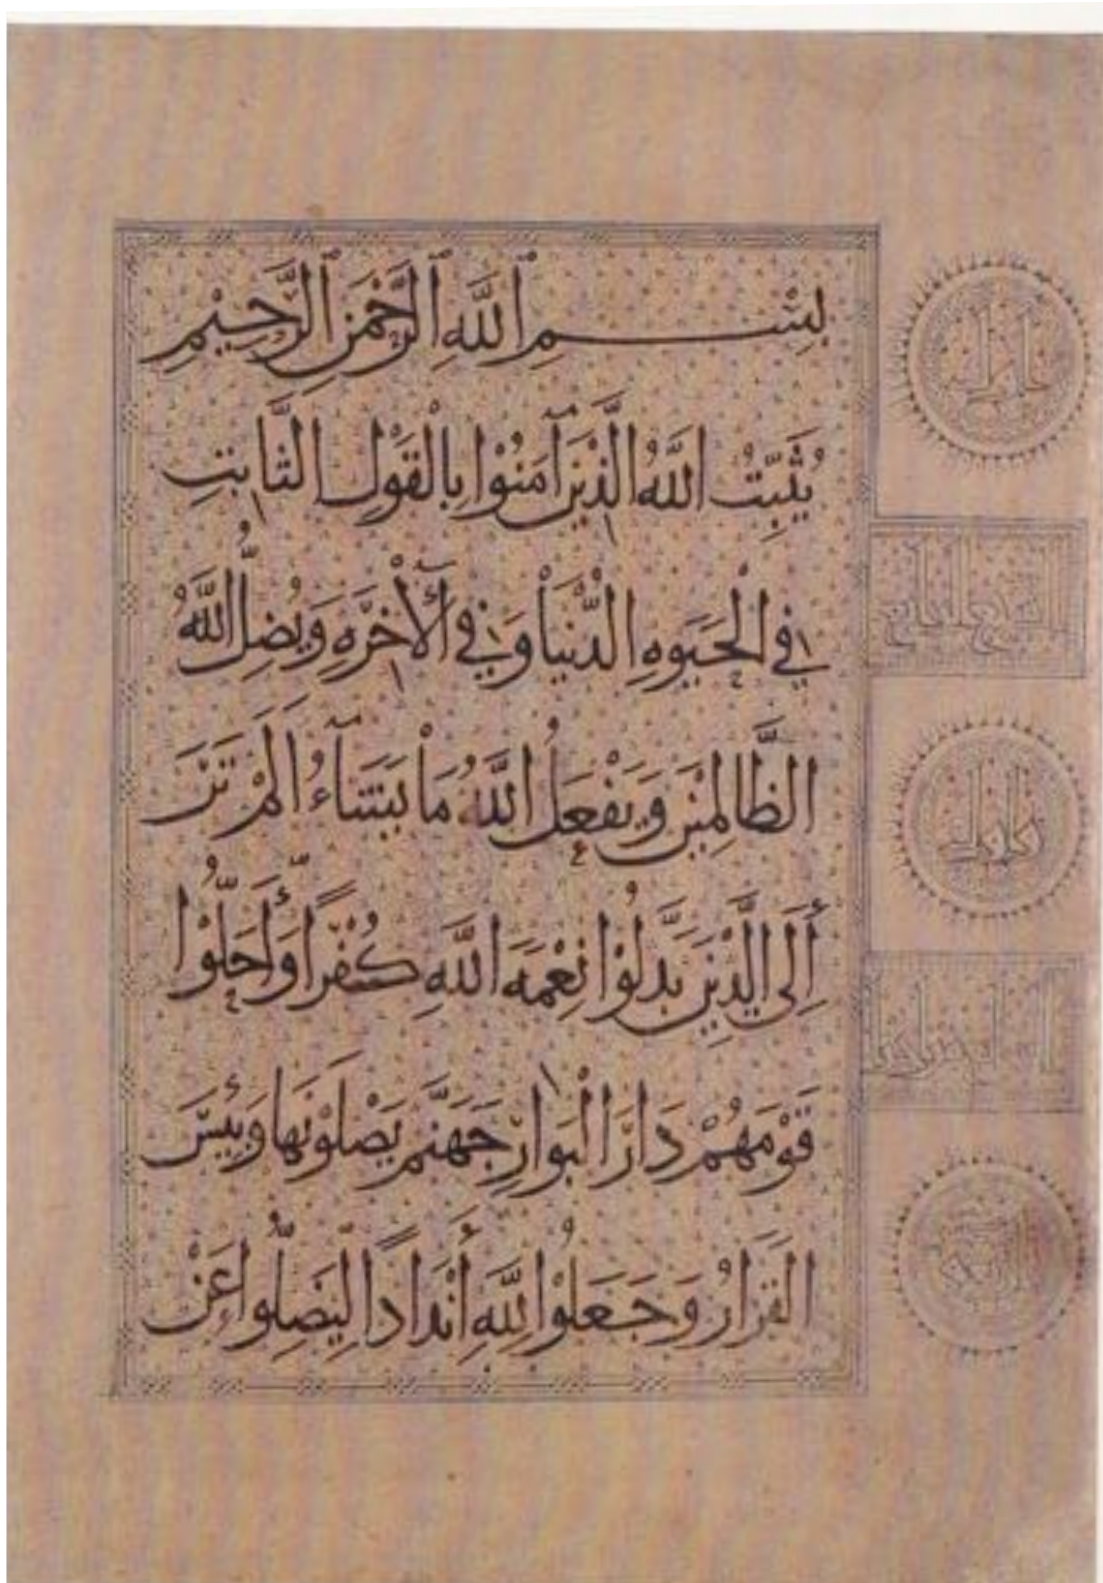 بِسْمِ ٱللَّهِ ٱلرَّحْمَنِ ٱلرَّحِيمِ
يُثَبِّتُ اللَّهُ الَّذِيْنَ آمَنُوْا بِالْقَوْلِ الثَّابِتِ
فِي الْحَيَوةِ الدُّنْيَا وَفِي الْأَخِرَةِ وَيُضِلُّ اللَّهُ
الظَّالِمِيْنَ وَيَفْعَلُ اللَّهُ مَا يَشَآءُ أَلَمْ تَرَ
إِلَى الَّذِيْنَ بَدَّلُوْا نِعْمَةَ اللَّهِ كُفْرًا وَأَحَلُّوْا
قَوْمَهُمْ دَارَ الْبَوَارِ جَهَنَّمَ يَصْلَوْنَهَا وَبِئْسَ
الْقَرَارُ وَجَعَلُوْا لِلَّهِ أَنْدَادًا لِيُضِلُّوا عَنْ